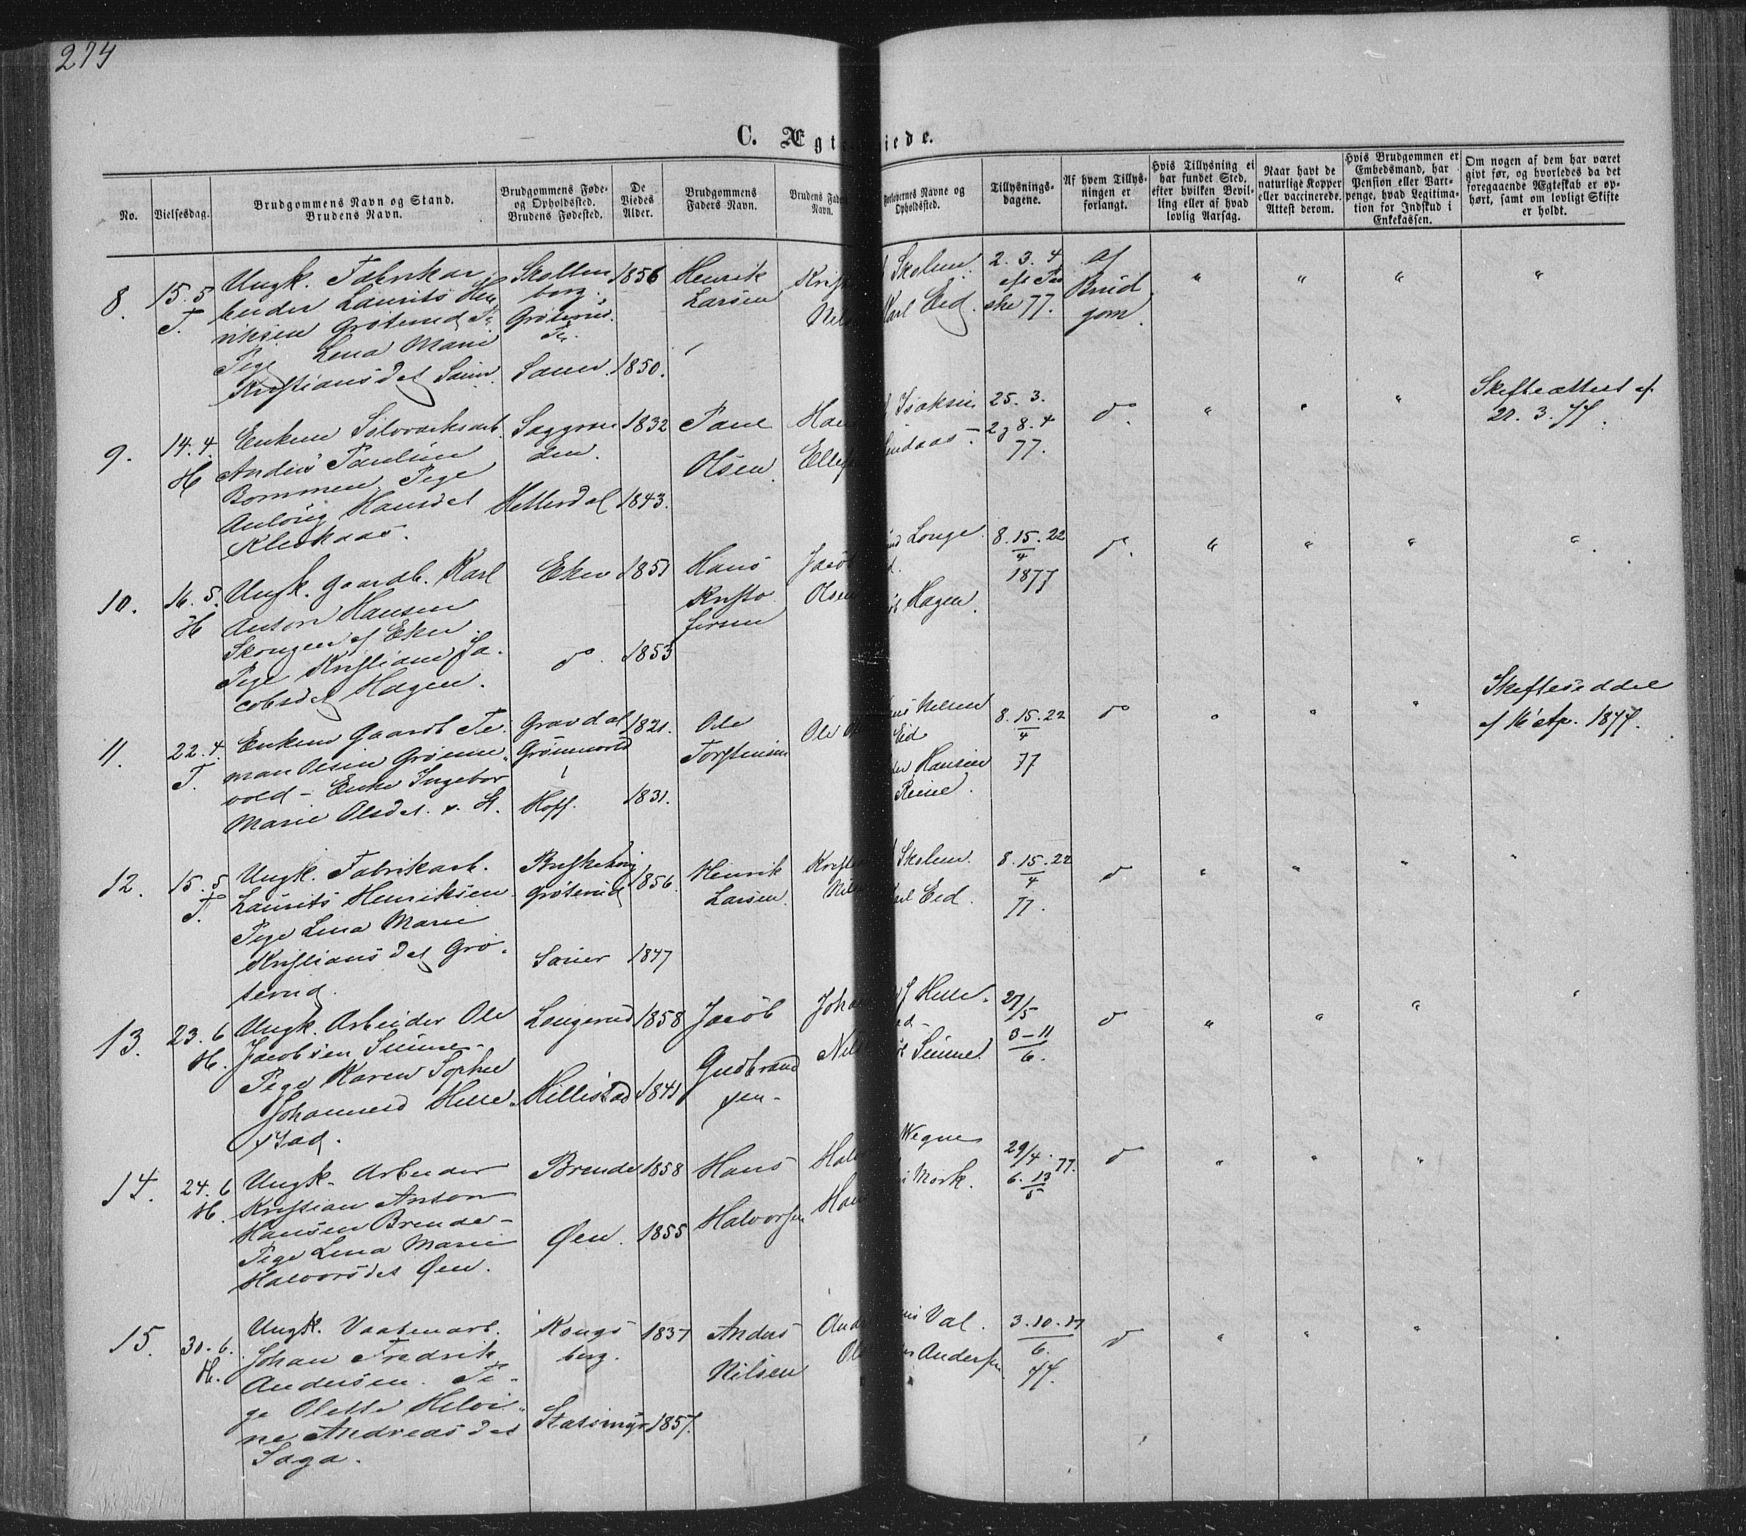 274
C. Ægt iede.
No.
Vielsesdag.
Brudgommens Navn og Stand.
Brudens Navn.
Brudgommens Føde-
og Opholdsted.
Brudens Fødested.
De
Viedes
Alder.
Brudgommens
Faders Navn.
Brudens Fad
Navn.
Forlovernes Navne og
Opholdsted.
Tillysnings-
dagene.
Af hvem Tillys-
ningen er
forlangt.
Hvis Tillysning ei
har fundet Sted,
efter hvilken Bevil-
ling eller af hvad
lovlig Aarsag.
Naar havt de
naturlige Kopper
eller vaccinerede.
Attest derom.
Hvis Brudgommen er
Embedsmand, har
Pension eller Vart-
penge, hvad Legitima-
tion for Indskud i
Enkekassen.
Om nogen af dem har været
givt før, og hvorledes da det
foregaaende Ægteskab er op-
hørt, samt om lovligt Skifte
er holdt.
8.
15. 5
T.
Ungk. Fabrikar
beider Laurits Hen
riksen Grøterud
Pige Lena Marie
Kristiansdat Sauer
Skollen
borg.
Grøterud
Sauer
1856
1850.
Henrik
Larsen
Krist
Nils
Skolem
Karl Eid.
2. 3. 4
77.
af
Brud
gom.
" " " "
9.
14. 4.
H
Enkem Sølvværksarb.
Anders Paulsen
Bommen, Pige
Anlaug Hansdat
Klevkaas.
Saggren
den.
Hitterdal
1832
1843.
Paul
Olsen
Han
Ellef
Isaksen
25. 3.
2 & 8. 4
77.
do.
" " "
Skifteattest af
20. 3. 77.
10.
16. 5.
H
Ungk. Gaardb. Karl
Anton Hansen
Skougen af Eker
Pige Kristiane Ja-
cobsdat Hagen.
Eker
do.
1851
1853
Hans
Kristo
fersen
Jacob
Olsen
Longe
Hagen.
8. 15. 22
4
1877
do.
" " " "
11.
22. 4.
T.
Enkem Gaardb Te
man Olsen Grønne
vold - Enke Ingebor
Marie Olsdat.
Gravdal
Grønnvold
Hoff.
1821.
1831.
Ole
Torstensen
Ole Ol
Nilsen
Eid
Hansen
8. 15. 22
4
77
do
" " "
Skifteseddel
af 16 Ap. 1877.
12.
15. 5
T.
Ungk. Fabrikarb.
Laurits Henriksen
Pige Lena Marie
Kristiansdat Grø-
terud.
Grøterud
Sauer
1856.
1847
Henrik
Larsen.
Kristi
Nils
Skolem.
Karl Eid.
8. 15. 22
4
77.
do
" " " "
13.
23. 6
H.
Ungk. Arbeider Ole
Jacobsen
Pige Karen Sophie
Johannesd Hille-
stad.
Longerud
Hillestad
1858
1841
Jacob
Gudbrand
sen-
Joha
Nils
Hille-
27/5
3-11
6.
do
" " " "
14.
24. 6
H.
Ungk. Arbeider
Kristian Anton
Hansen Brende-
Pige Lena Marie
Halvorsdat Øen.
Brende
Øen.
1858
1855
Hans
Halvorsen
Hal
Han
Wegner
Mork.
29/4. 77.
6. 13
5
do
" " "
15.
30. 6.
H.
Ungk. Vaabenarb.
Johan Fredrik
Andersen. Pi-
ge Olette Helvi-
ne Andreasdat
Saga.
Kongs
berg.
1837
1857.
Anders
Nilsen
And
Ol
Val.
Andersen
3. 10. 17
6.
77.
do
" " "